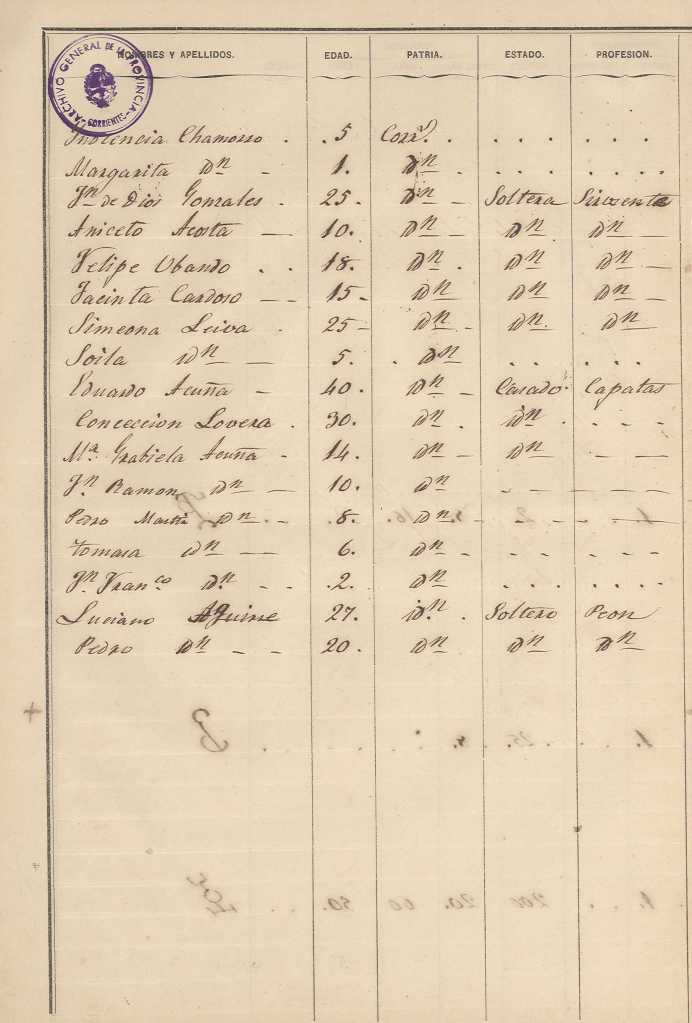 NOMBRES Y APELLIDOS. EDAD. PATRIA. ESTADO. PROFESION.
ARCHIVO GENERAL DE LA PROVINCIA - CORRIENTES -
Inocencia Chamorro . . 5 Corr.s . . . . . . . . .
Margarita Dn - 1. Dn . . . . . . . . .
Jn de Dios Gonzales . 25. Dn - Soltera Sirvente
Aniceto Acosta — 10. Dn — Dn — Dn —
Felipe Obando . . 18. Dn . Dn Dn —
Jacinta Cardoso — — 15 - Dn Dn Dn —
Simeona Leiva . 25 - Dn - Dn. Dn
Soila Dn — 5. . Dn . . . . .
Eduardo Acuña - 40. Dn - Casado. Capatas
Conceccion Lovera . 30. Dn . Dn . . - -
Ma. Grabiela Acuña - 14. Dn - Dn - —
Jn Ramon Dn — 10. Dn - - — — —
Pedro Dn . - . 8. Dn. - - - —
Tomasa Dn — — 6. Dn - - - - - -
Jn Franco Dn - - . 2. Dn . . . . . . .
Luciano Aguirre 27. Dn . Soltero Peon
Pedro Dn - - 20. Dn Dn Dn